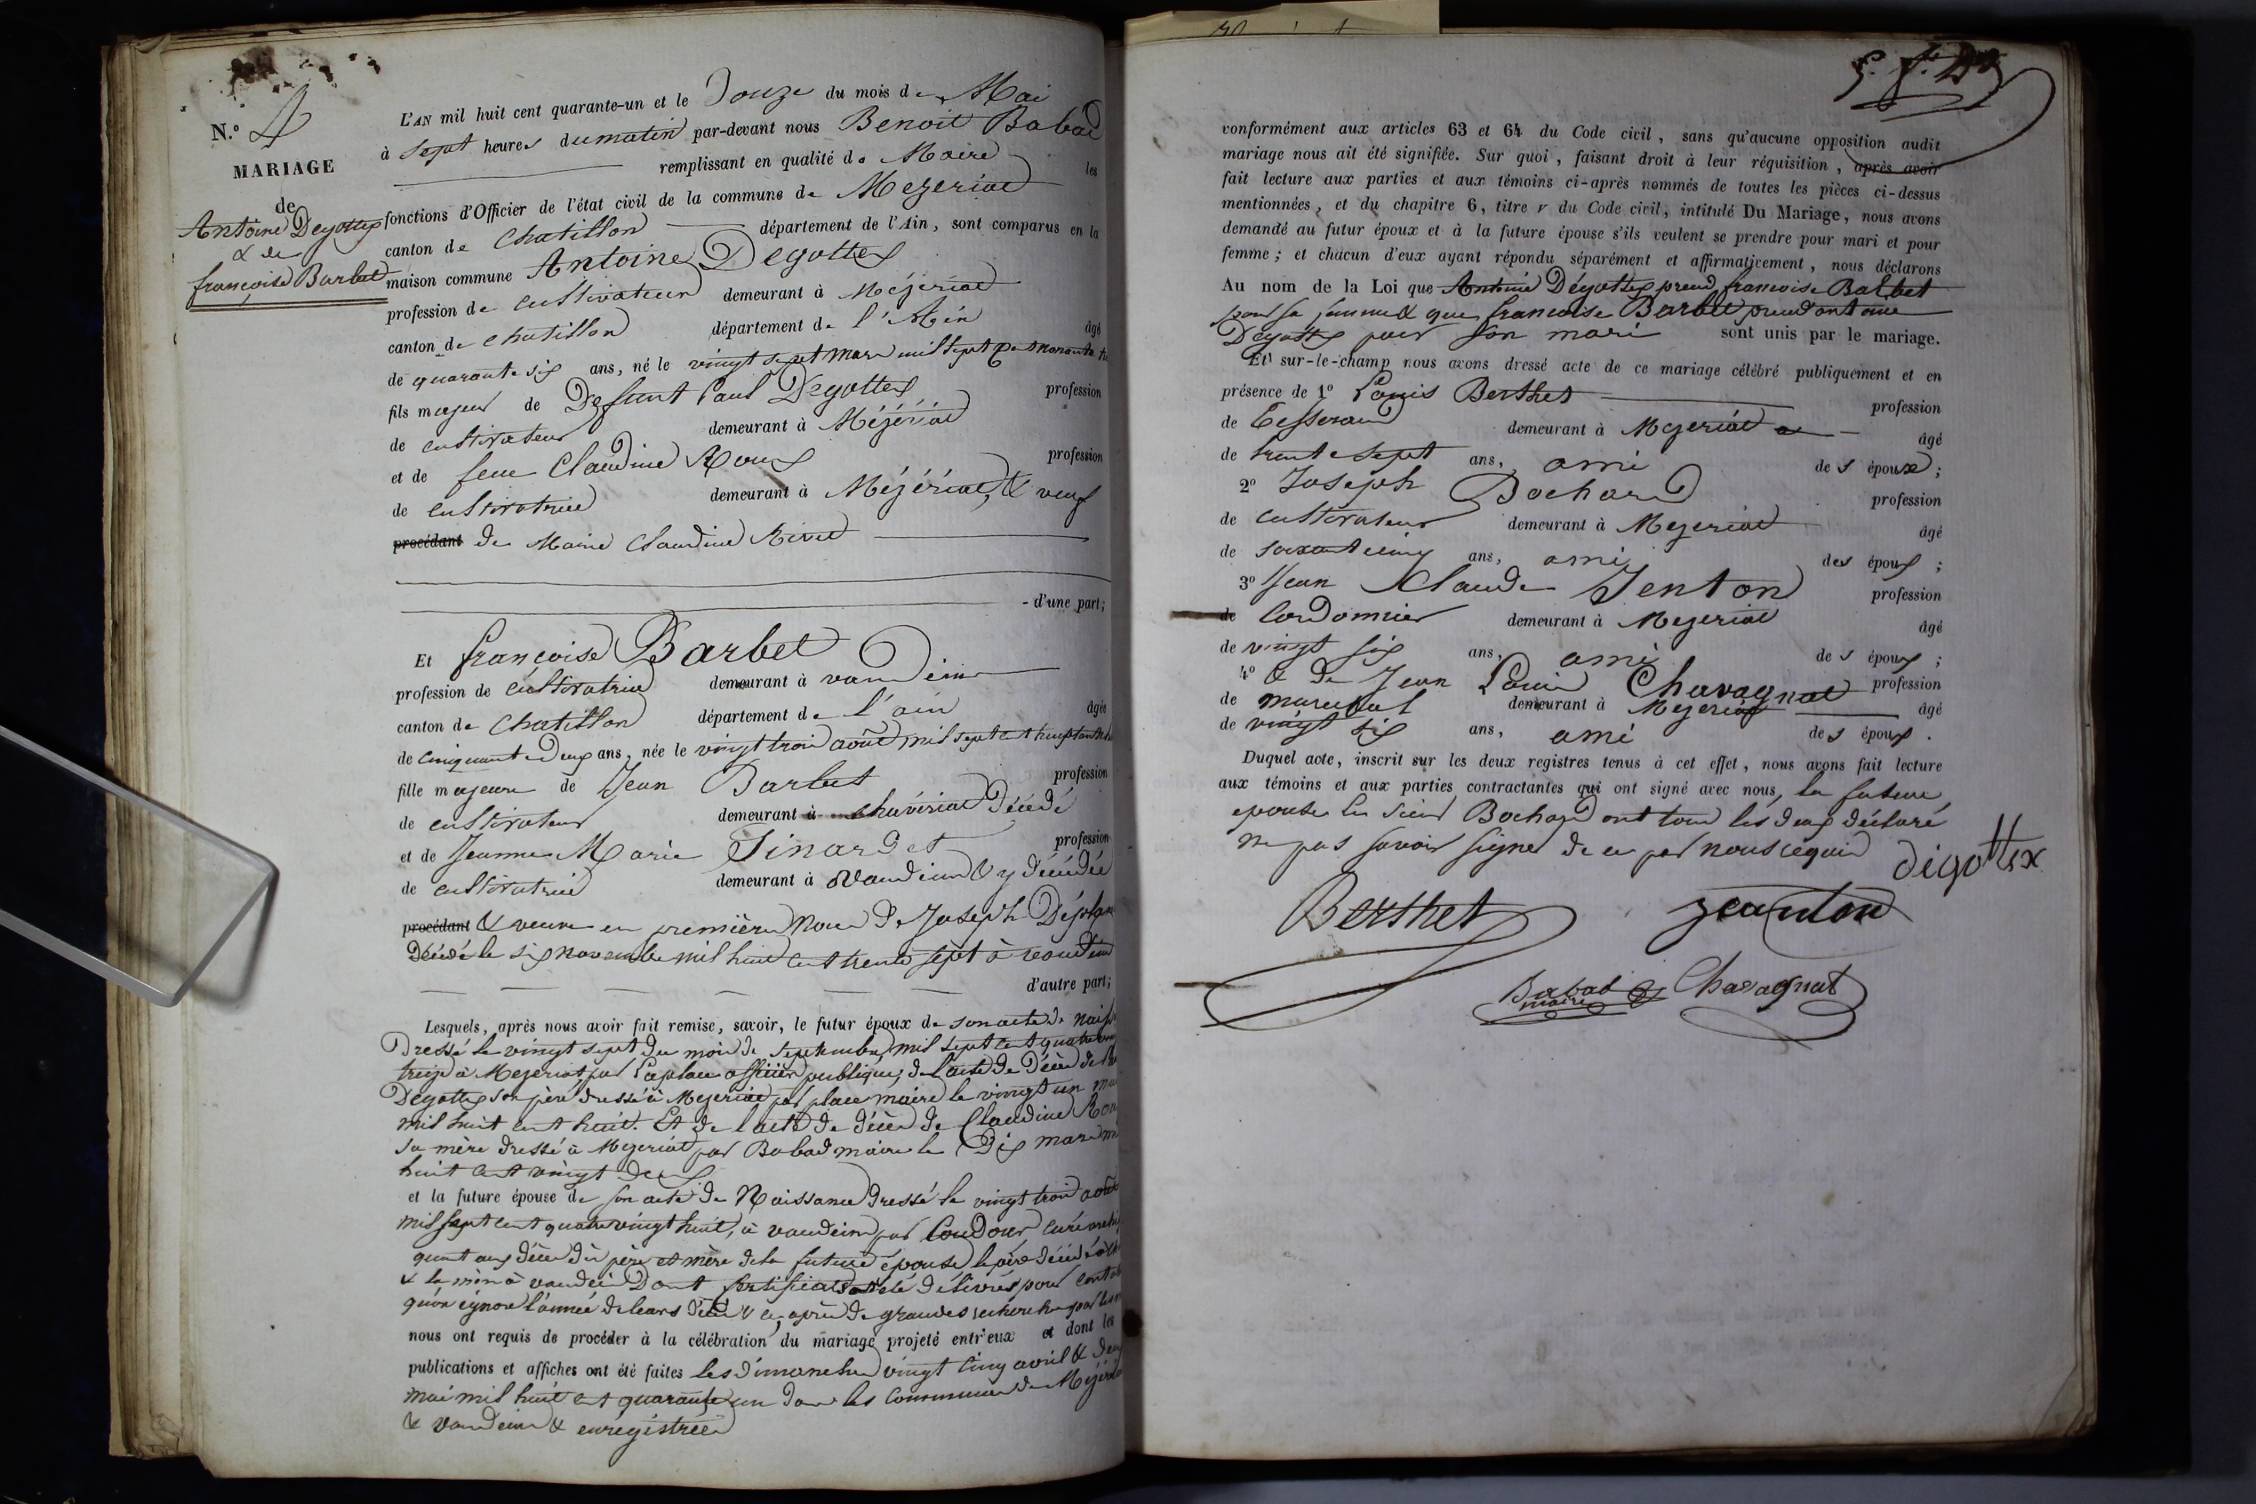 N.º 4
MARIAGE
de
Antoine Degottex
& de
françoise Barbet
L'AN mil huit cent quarante-un et le Douze du mois de Mai
à sept heures du matin par-devant nous Benoit Babad
remplissant en qualité de Maire les
fonctions d'Officier de l'état civil de la commune de Mezeriat
canton de Chatillon département de l'Ain, sont comparus en la
maison commune Antoine Degottex
profession de cultivateur demeurant à Mézériat
canton de chatillon département de l'Ain âgé
de quarante six ans, né le vingt sept mars mil sept cent nonante
fils majeur de Defunt Paul Degottex profession
de cultivateur demeurant à Mézériat
et de feue Claudine Roux profession
de cultivatrice demeurant à Mézériat, & veuf
procédant de Marie Claudine Rivet
- d'une part;
Et françoise Barbet
profession de cultivatrice demeurant à vandeins
canton de Chatillon département de l'ain âgée
de cinquante Deux ans, née le vingt trois août mil sept cent
fille majeure de Jean Barbet profession
de cultivateur demeurant à chavériat Décédé
et de Jeanne Marie Sinardet profession
de cultivatrice demeurant à Vandeins & y décédée
procédant & veuve en première Noce De Joseph Déplan
Décédé le six novembre mil huit cent trente sept à vandeins
d'autre part;
Lesquels, après nous avoir fait remise, savoir, le futur époux de son acte de
Dressé le vingt sept du mois de septembre mil sept cent quatre
treize à Mezeriat par Laplace officier publique; de l'acte de Décès de
Degottex son père dressé à Mezeriat par place maire le vingt un
mil huit cent huit. Et de l'acte de décès de Claudine Roux
sa mère dressé à Mezeriat par Babad maire le Dix mars
huit cent vingt deux
et la future épouse de son acte de Naissance dressé le vingt trois août
mil sept cent quatre vingt huit, à vandeins par Coudour, curé
quant aux décès du père et mère de la future épouse le père décédé à
& la mère à vandein Dont certificats ont été délivrés pour
qu'on ignore l'année de leurs décès & ce, après de grandes recherches par
nous ont requis de procéder à la célébration du mariage projeté entr'eux et dont les
publications et affiches ont été faites les dimanches vingt cinq avril &
mai mil huit cent quarante un dans les communes de
& Vandeins & enregistrées
conformément aux articles 63 et 64 du Code civil, sans qu'aucune opposition audit
mariage nous ait été signifiée. Sur quoi, faisant droit à leur réquisition, après avoir
fait lecture aux parties et aux témoins ci-après nommés de toutes les pièces ci-dessus
mentionnées, et du chapitre 6, titre V du Code civil, intitulé Du Mariage, nous avons
demandé au futur époux et à la future épouse s'ils veulent se prendre pour mari et pour
femme; et chacun d'eux ayant répondu séparément et affirmativement, nous déclarons
Au nom de la Loi que Antoine Dégottex prend francoise Barbet
pour sa femme & que francoise Barbet prend antoine
Dégottex pour son mari sont unis par le mariage.
Et sur-le-champ nous avons dressé acte de ce mariage célébré publiquement et en
présence de 1º Louis Berthet profession
de Tesserand demeurant à Mezeriat âgé
de trente sept ans, ami des époux;
2º Joseph Bochard profession
de cultivateur demeurant à Mezeriat âgé
de soixante cinq ans, ami des époux;
3º Jean Claude Jenton profession
de Cordonnier demeurant à Mezeriat âgé
de vingt six ans, ami des époux;
4º & de Jean Louis Chavagnat profession
de marechal demeurant à Mezeriat âgé
de vingt six ans, ami des époux.
Duquel acte, inscrit sur les deux registres tenus à cet effet, nous avons fait lecture
aux témoins et aux parties contractantes qui ont signé avec nous, la future
epouse les sieur Bochard ont tous les deux déclaré
ne pas savoir signer de ce par nous requis
dégottex
Berthet
jeanton
Babad
maire
Chavagnat